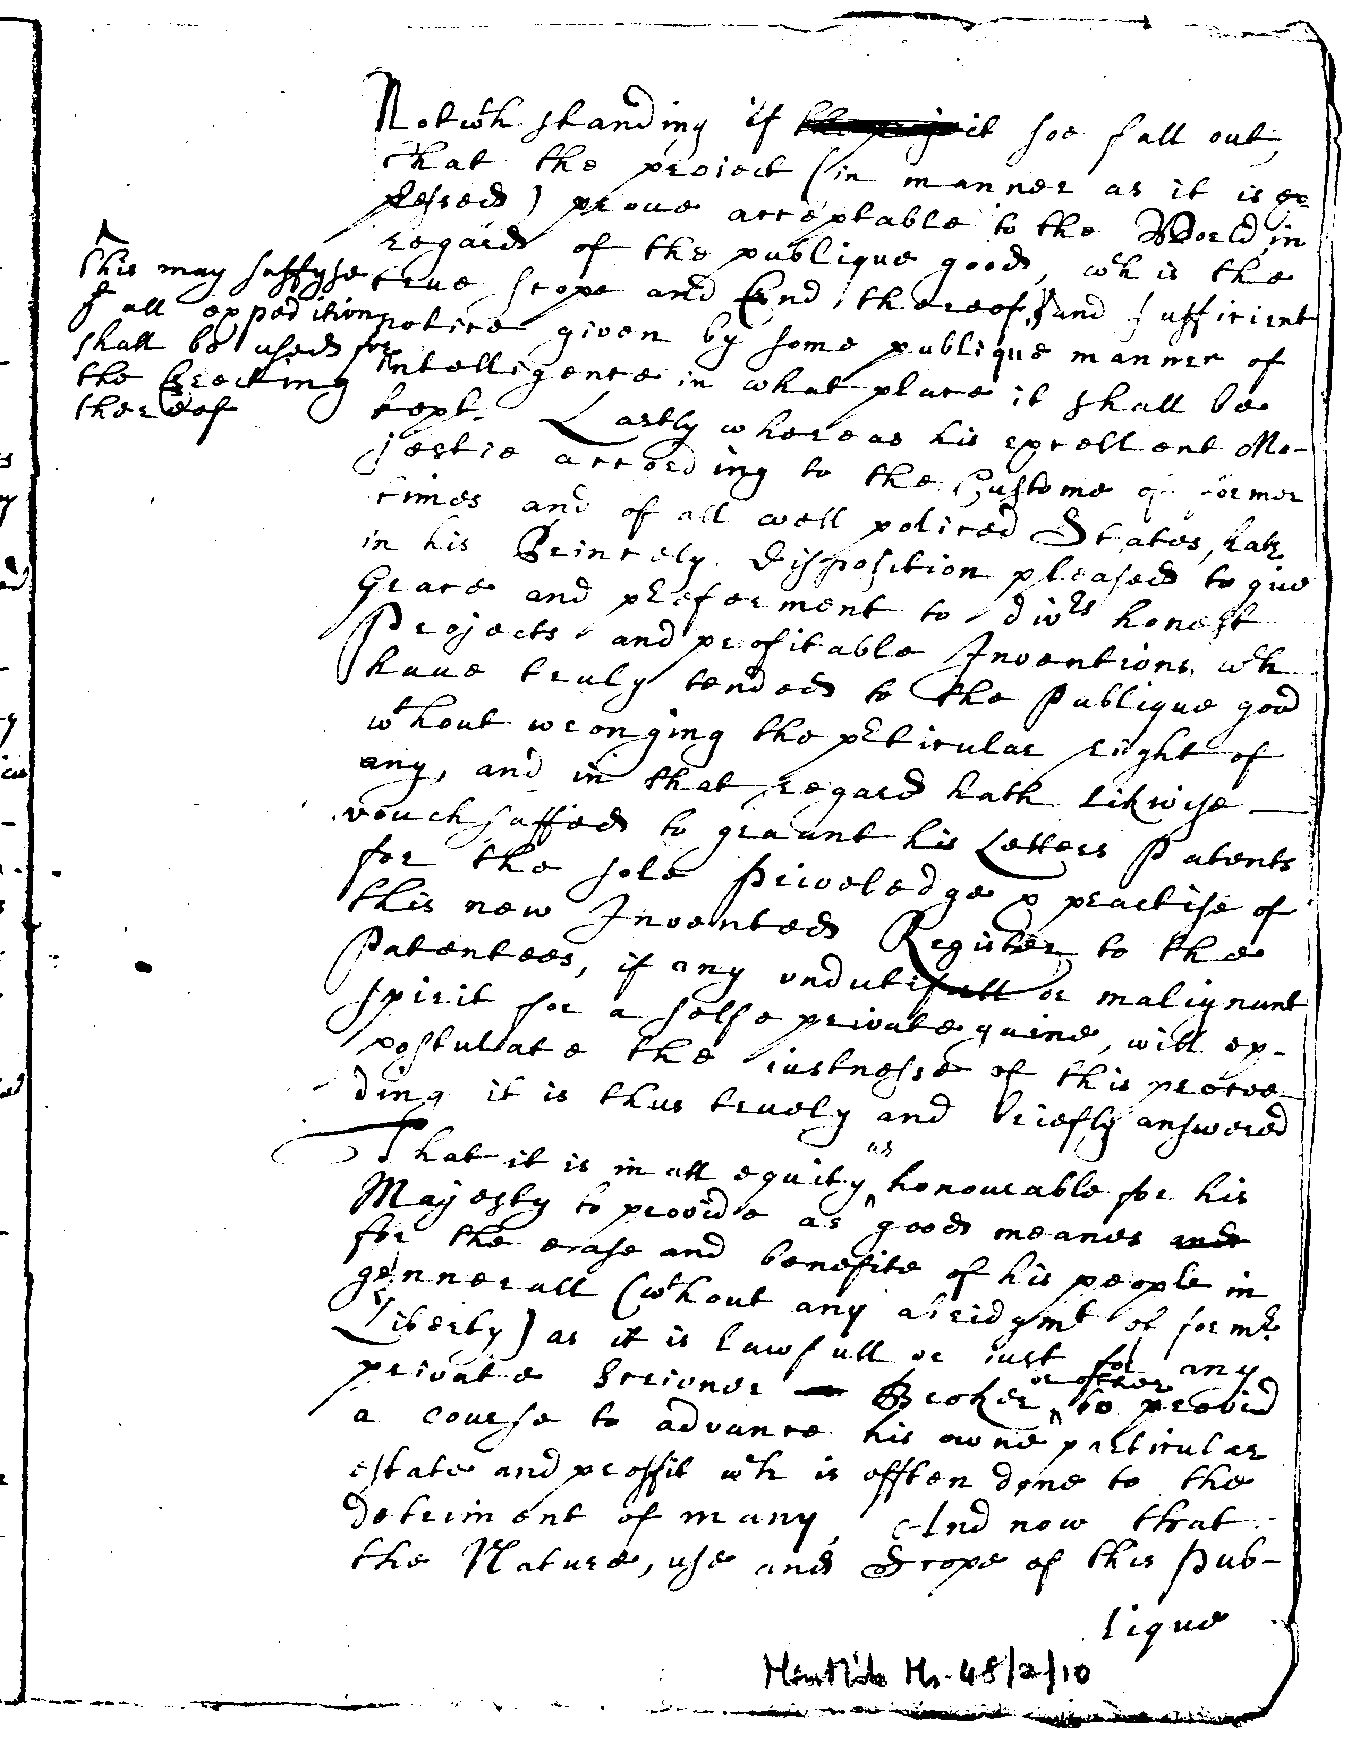 Notwth standing if it soe fall out,
that the project (in manner as it is ex-
pressed) proue acceptable to the World in
regard of the publique good, wch is the
true scope and End thereof, and sufficient
notice given by some publique manner of
Intelligence in what place it shall be
kept. Lastly whereas his excellent Ma-
jestie according to the Custome of former
times and of all well policed States, hath
in his Princely disposition pleased to giue
Grace and preferment to divrs honest
Projects and profitable Inventions wch
haue truly tended to the Publique good
wthout wronging the pticular right of
any, and in that regard hath likwise
vouchsaffed to graunt his Letters Patents
for the sole Priveledge & practise of
this new Invented Register to the
Patentees, if any undutifull or malignant
spirit for a selfe private gaine, will ex-
postulate the iustnesse of this procee-
ding it is thus truely and briefly answered
That it is in all equity as honourable for his
Majesty to provide as good meanes
for the ease and benefite of his people in
gennerall (wthout any abridgmt of formr
Liberty) as it is lawfull or iust for any
private Scrivner Broker or other to provid
a course to advance his owne particular
estate and proffit wch is offten done to the
detriment of many, And now that
the Nature, use and Scope of this Pub-
lique
This may suffyse
& all expedition
shall be used for
the Erecting
thereof
Ms. 48/2/10